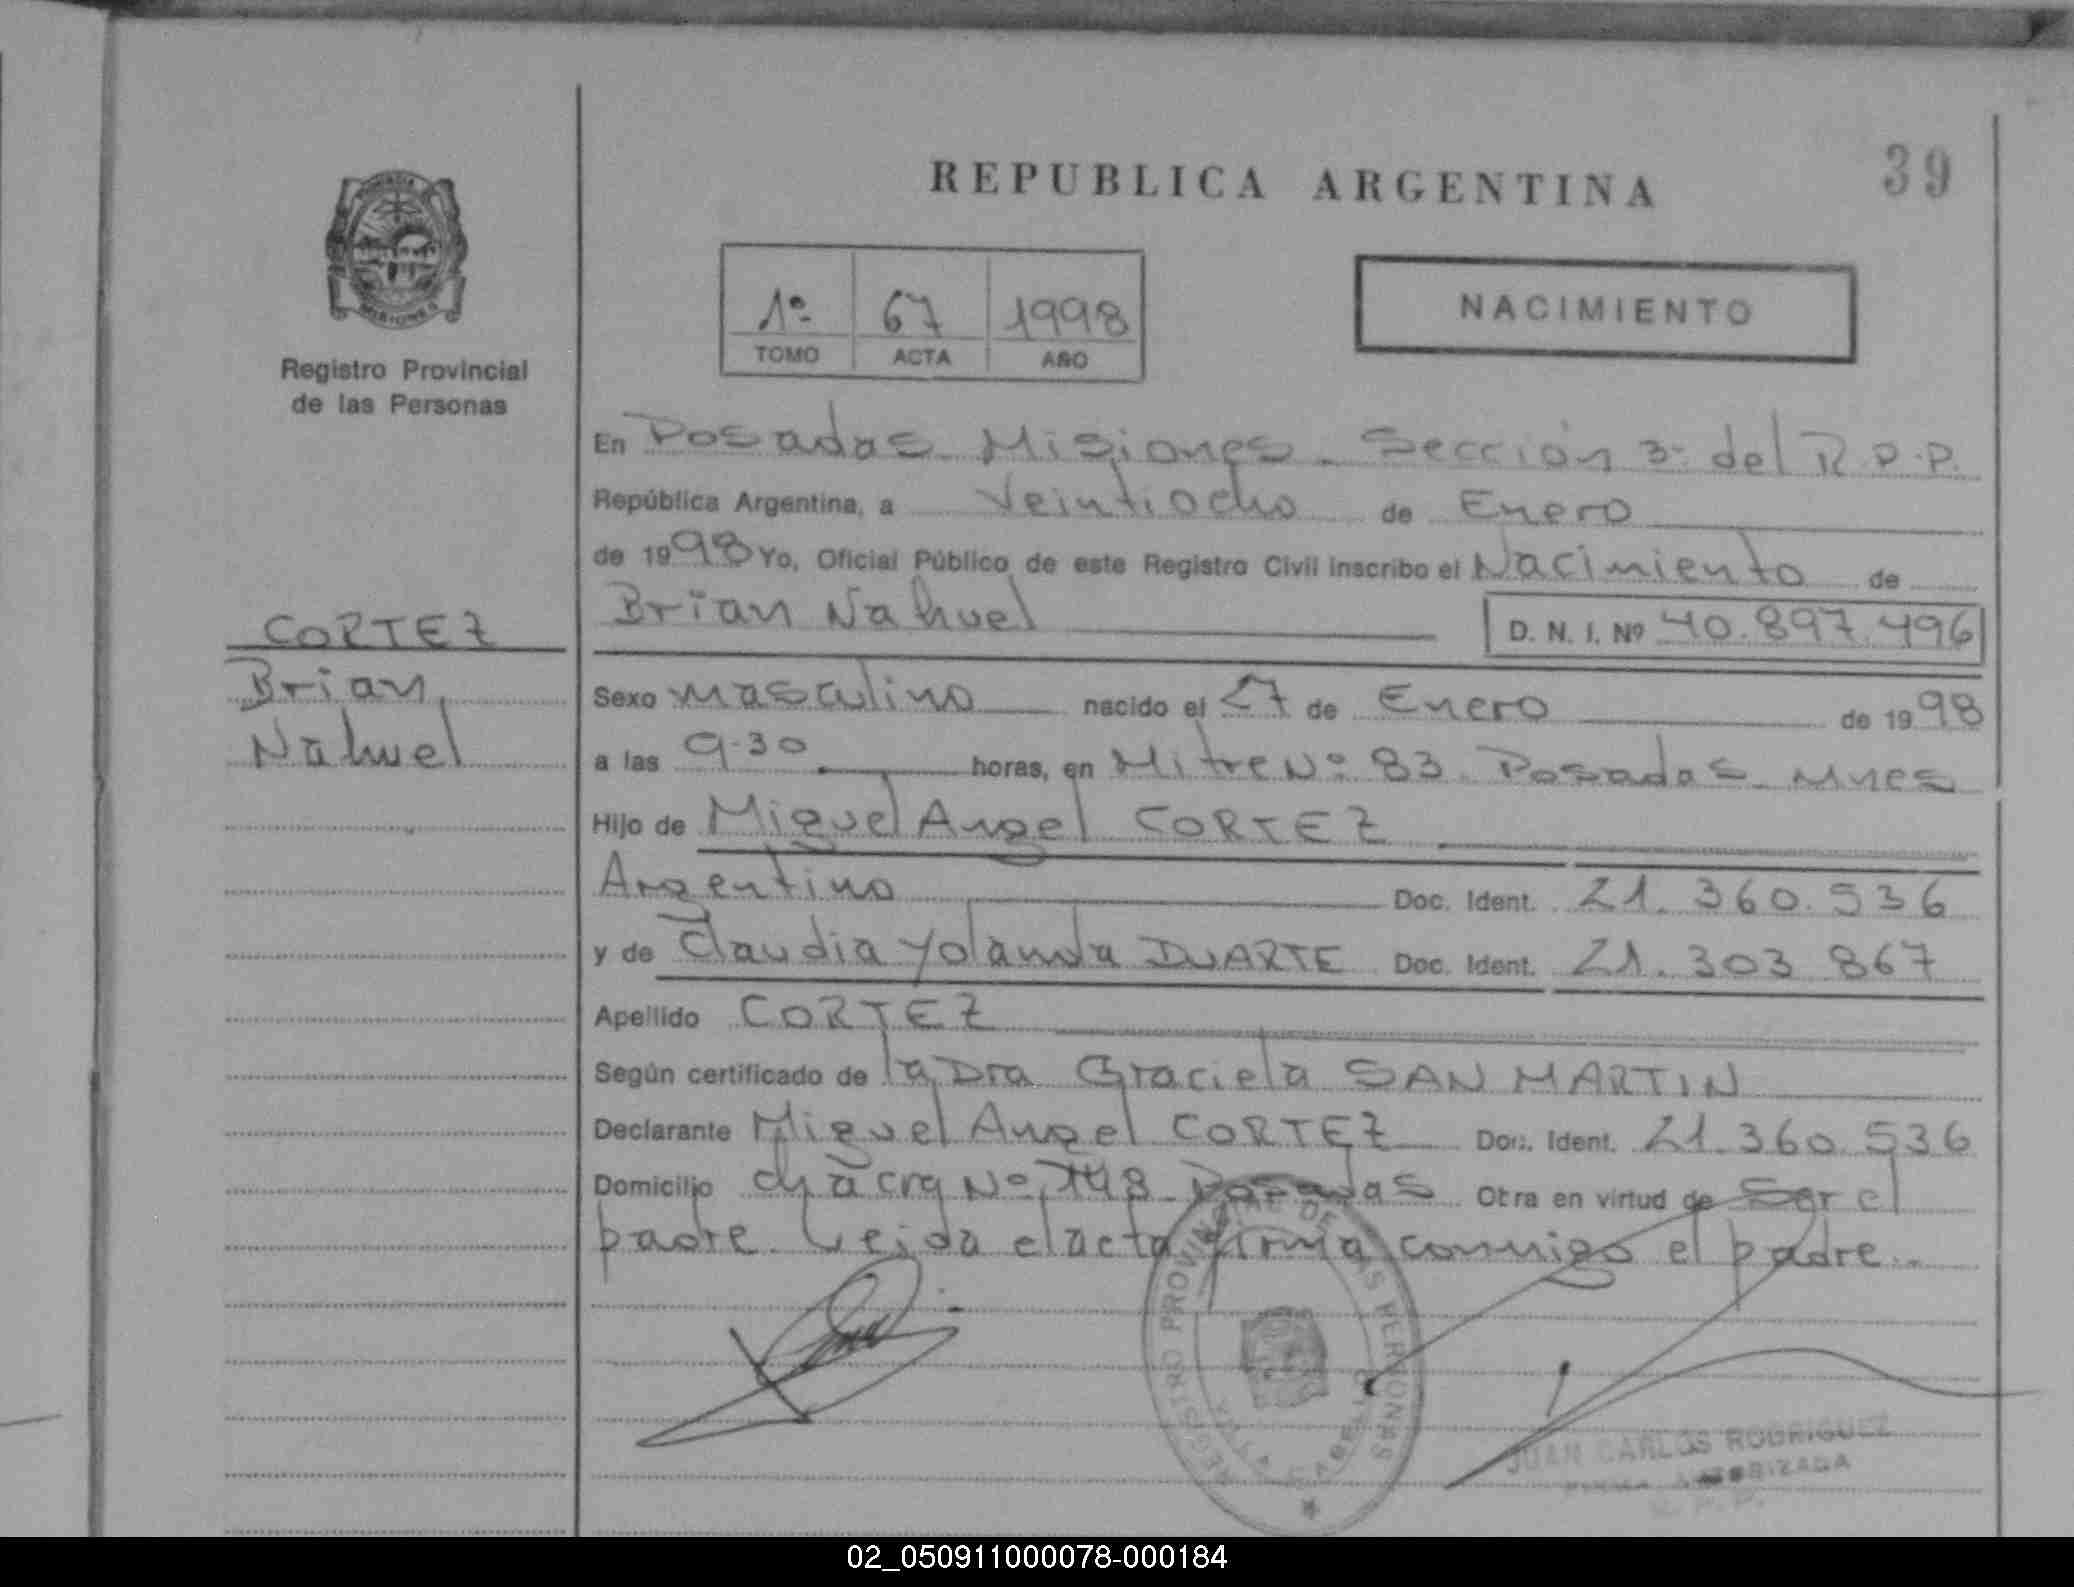 REPUBLICA ARGENTINA
39
1º 67 1998
TOMO ACTA AÑO
NACIMIENTO
MISIONES
Registro Provincial
de las Personas
CORTEZ
Brian
Nahuel
En Posadas Misiones. Sección 3ª del R.P.P.
República Argentina, a Veintiocho de Enero
de 1998 Yo, Oficial Público de este Registro Civil inscribo el Nacimiento de
Brian Nahuel D. N. I. Nº 40.897.496
Sexo masculino nacido el 27 de Enero de 1998
a las 9.30 horas, en Mitre Nº 83 Posadas Mnes
Hijo de Miguel Angel CORTEZ
Argentino Doc. Ident. 21.360.536
y de Claudia Yolanda DUARTE Doc. Ident. 21.303 867
Apellido CORTEZ
Según certificado de la Dra Graciela SAN MARTIN
Declarante Miguel Angel CORTEZ Doc. Ident. 21.360.536
Domicilio chacra Nº 148 Posadas Otra en virtud de Ser el
padre. Leida el acta firma conmigo el padre..
REGISTRO PROVINCIAL DE LAS PERSONAS
JUAN CARLOS RODRIGUEZ
FIRMA AUTORIZADA
02_050911000078-000184